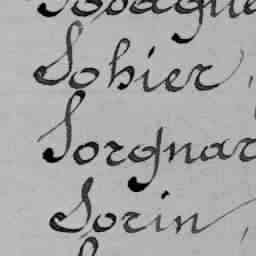 Sohier,
Sorgnar
Sorin,